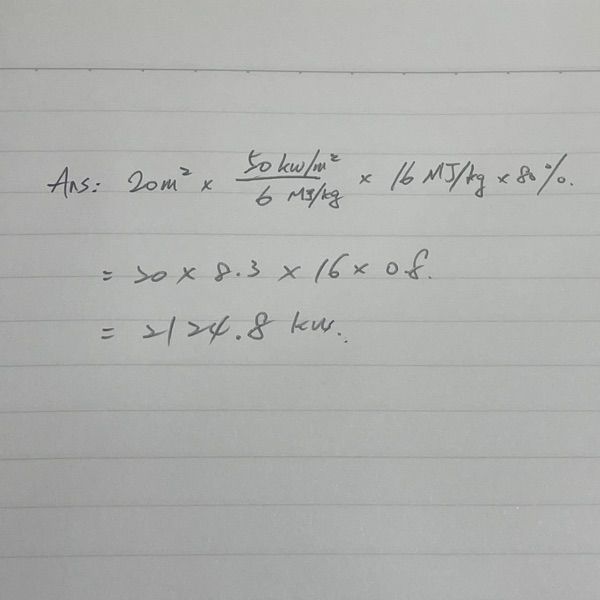 Ans: 20m² × 50 kw/m² / 6 MJ/kg × 16 MJ/kg × 80%.
= 20 × 8.3 × 16 × 0.8.
= 2124.8 kw.